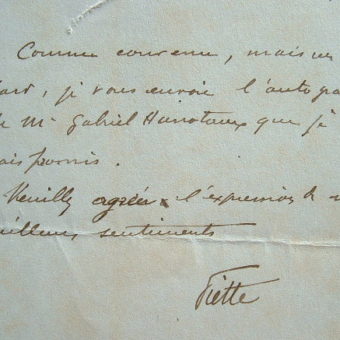 Comme convenu, mais un
tard, je vous envoie l'autogra
de Mr Gabriel Hanotaux que je
ais promis.
Veuillez agréer l'expression de m
eilleurs sentiments